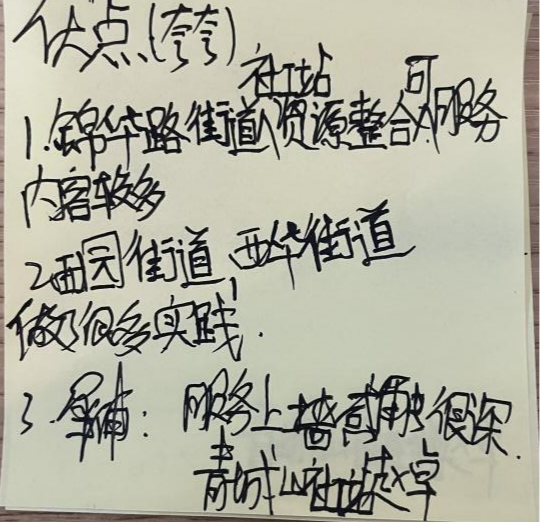 优点(夸夸)
1.锦华路街道社工站资源整合可服务
内容较多
2.西园街道、西华街道
做了很多实践.
3. : 服务上墙感触很深.
青城山社工站